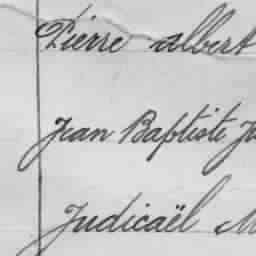 Pierre albert
Jean Baptiste
Judicaël